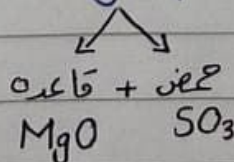 حمض + قاعده
MgO SO₃